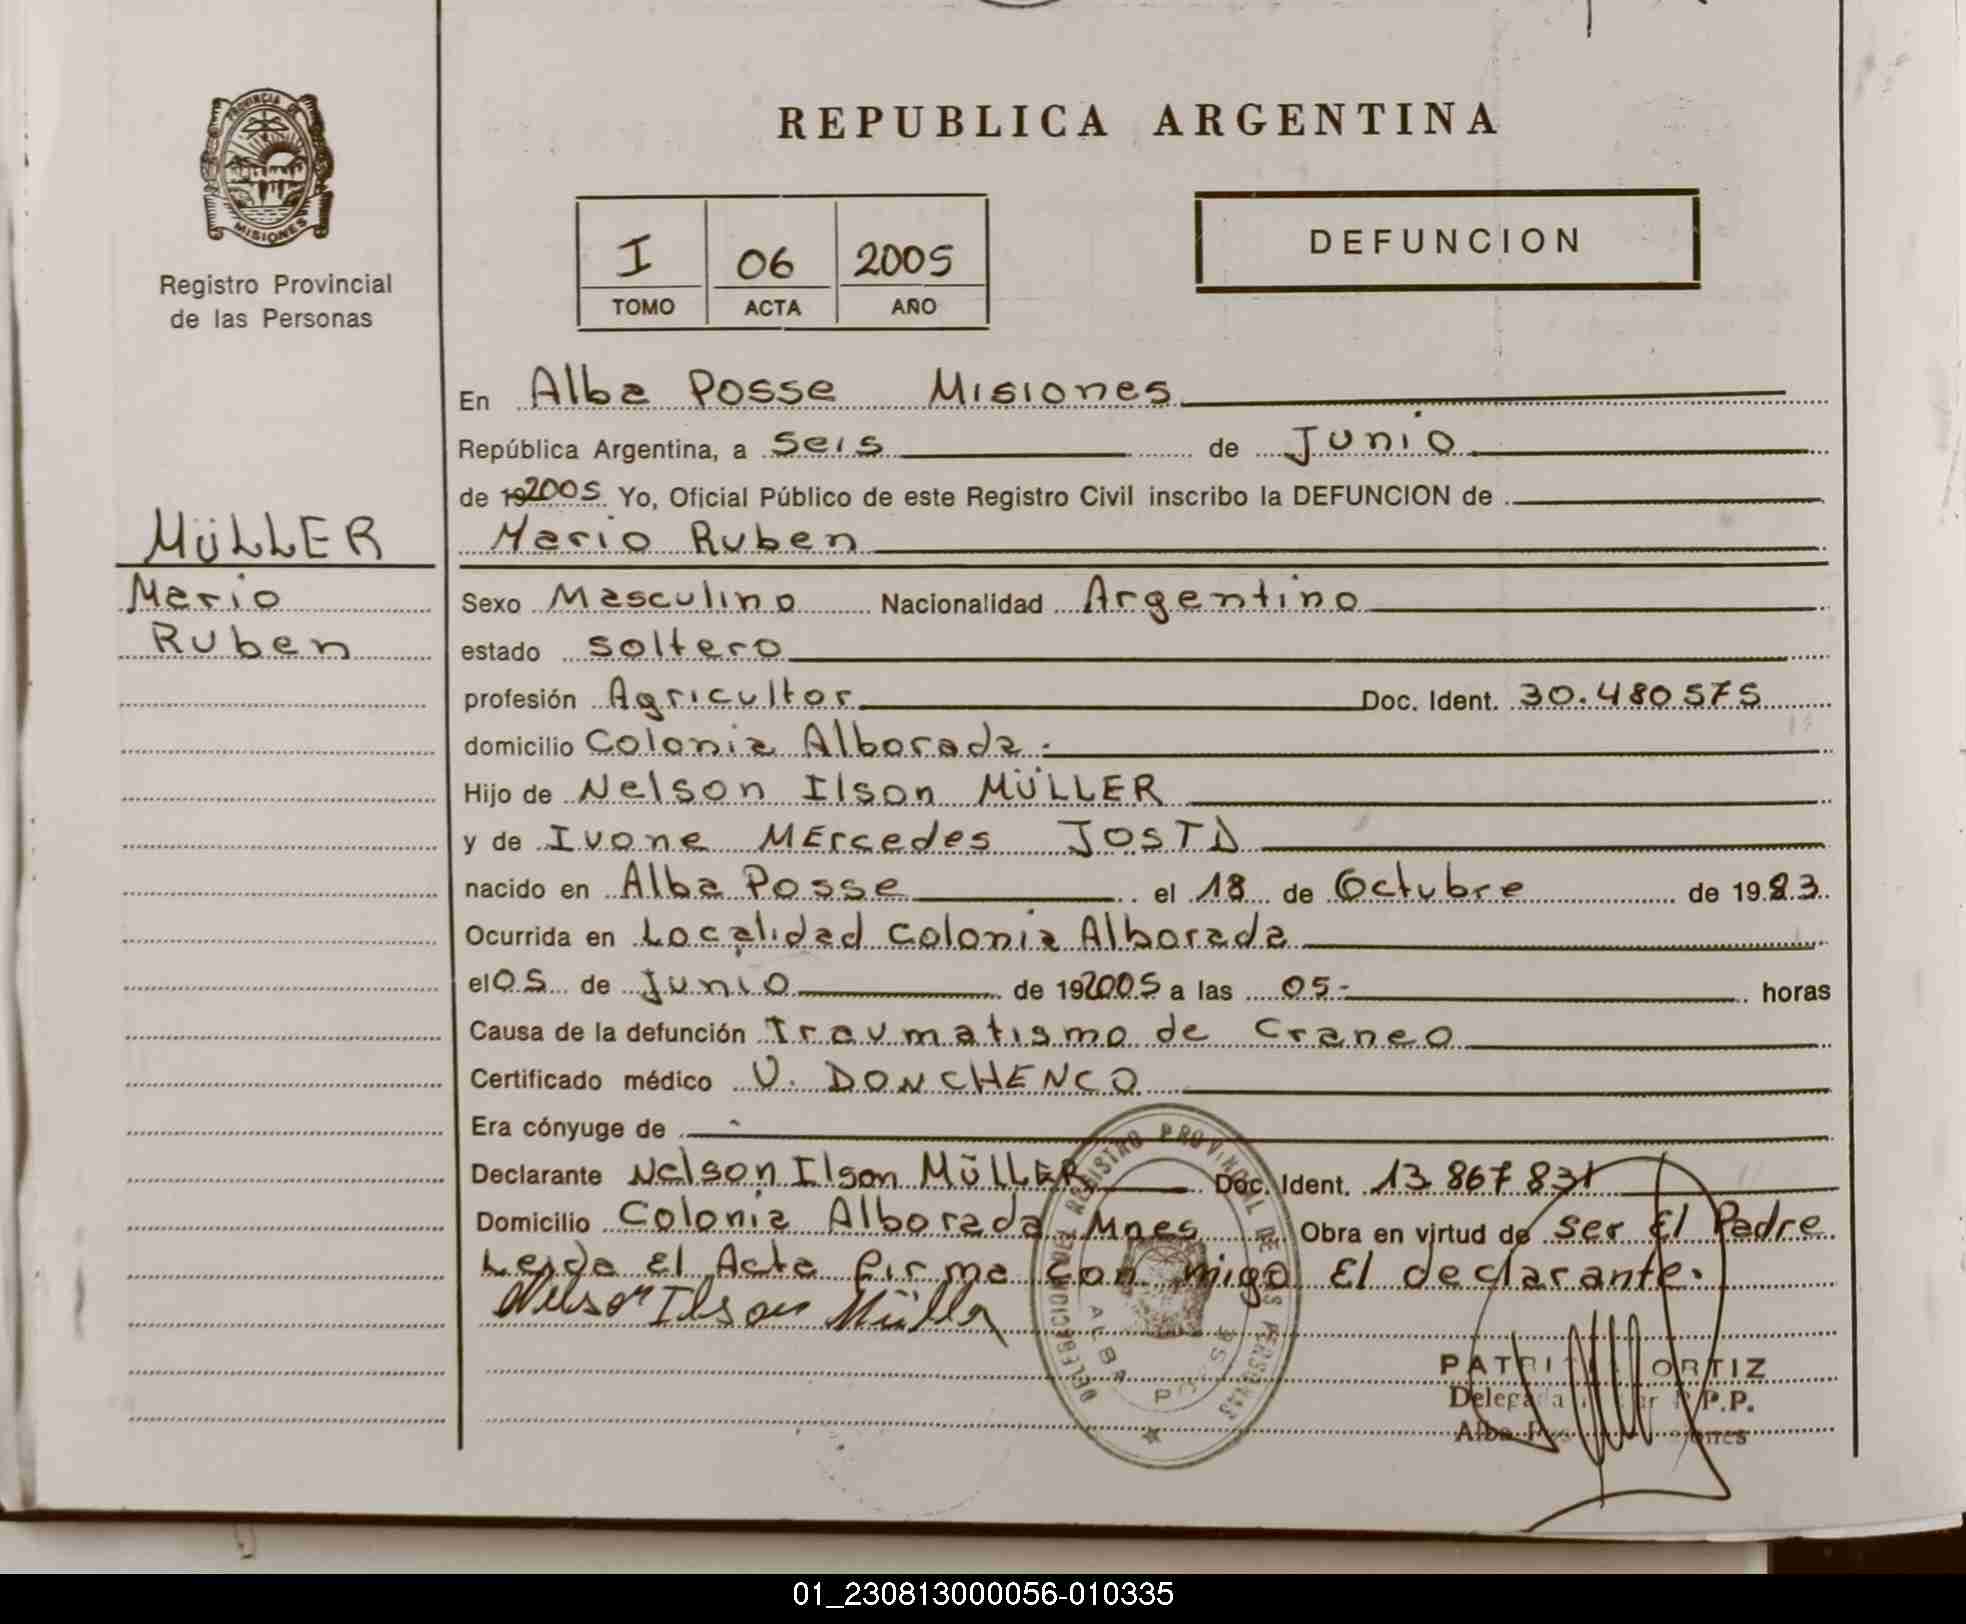 REPUBLICA ARGENTINA
PROVINCIA DE
MISIONES
Registro Provincial
de las Personas
I 06 2005
TOMO ACTA AÑO
DEFUNCION
MÜLLER
Mario
Ruben
En Alba Posse Misiones
República Argentina, a Seis de Junio
de 19 2005 Yo, Oficial Público de este Registro Civil inscribo la DEFUNCION de
Mario Ruben
Sexo Masculino Nacionalidad Argentino
estado Soltero
profesión Agricultor Doc. Ident. 30.480575
domicilio Colonia Alborada.-
Hijo de Nelson Ilson MÜLLER
y de Ivone MErcedes JOSTD
nacido en Alba Posse el 18 de Octubre de 1983
Ocurrida en Localidad Colonia Alborada
el 05 de Junio de 19 2005 a las 05- horas
Causa de la defunción Traumatismo de Craneo
Certificado médico V. DONCHENCO
Era cónyuge de -
Declarante Nelson Ilson MÜLLER Doc. Ident. 13 867 831
Domicilio Colonia Alborada Mnes Obra en virtud de Ser El Padre
Leida El Acta firma con migo El declarante.
Nelson Ilson Müller
DELEGACION DEL REGISTRO PROVINCIAL DE LAS PERSONAS
ALBA POSSE
PATRICIA ORTIZ
Delegada R.P.P.
Alba Posse Misiones
01_230813000056-010335